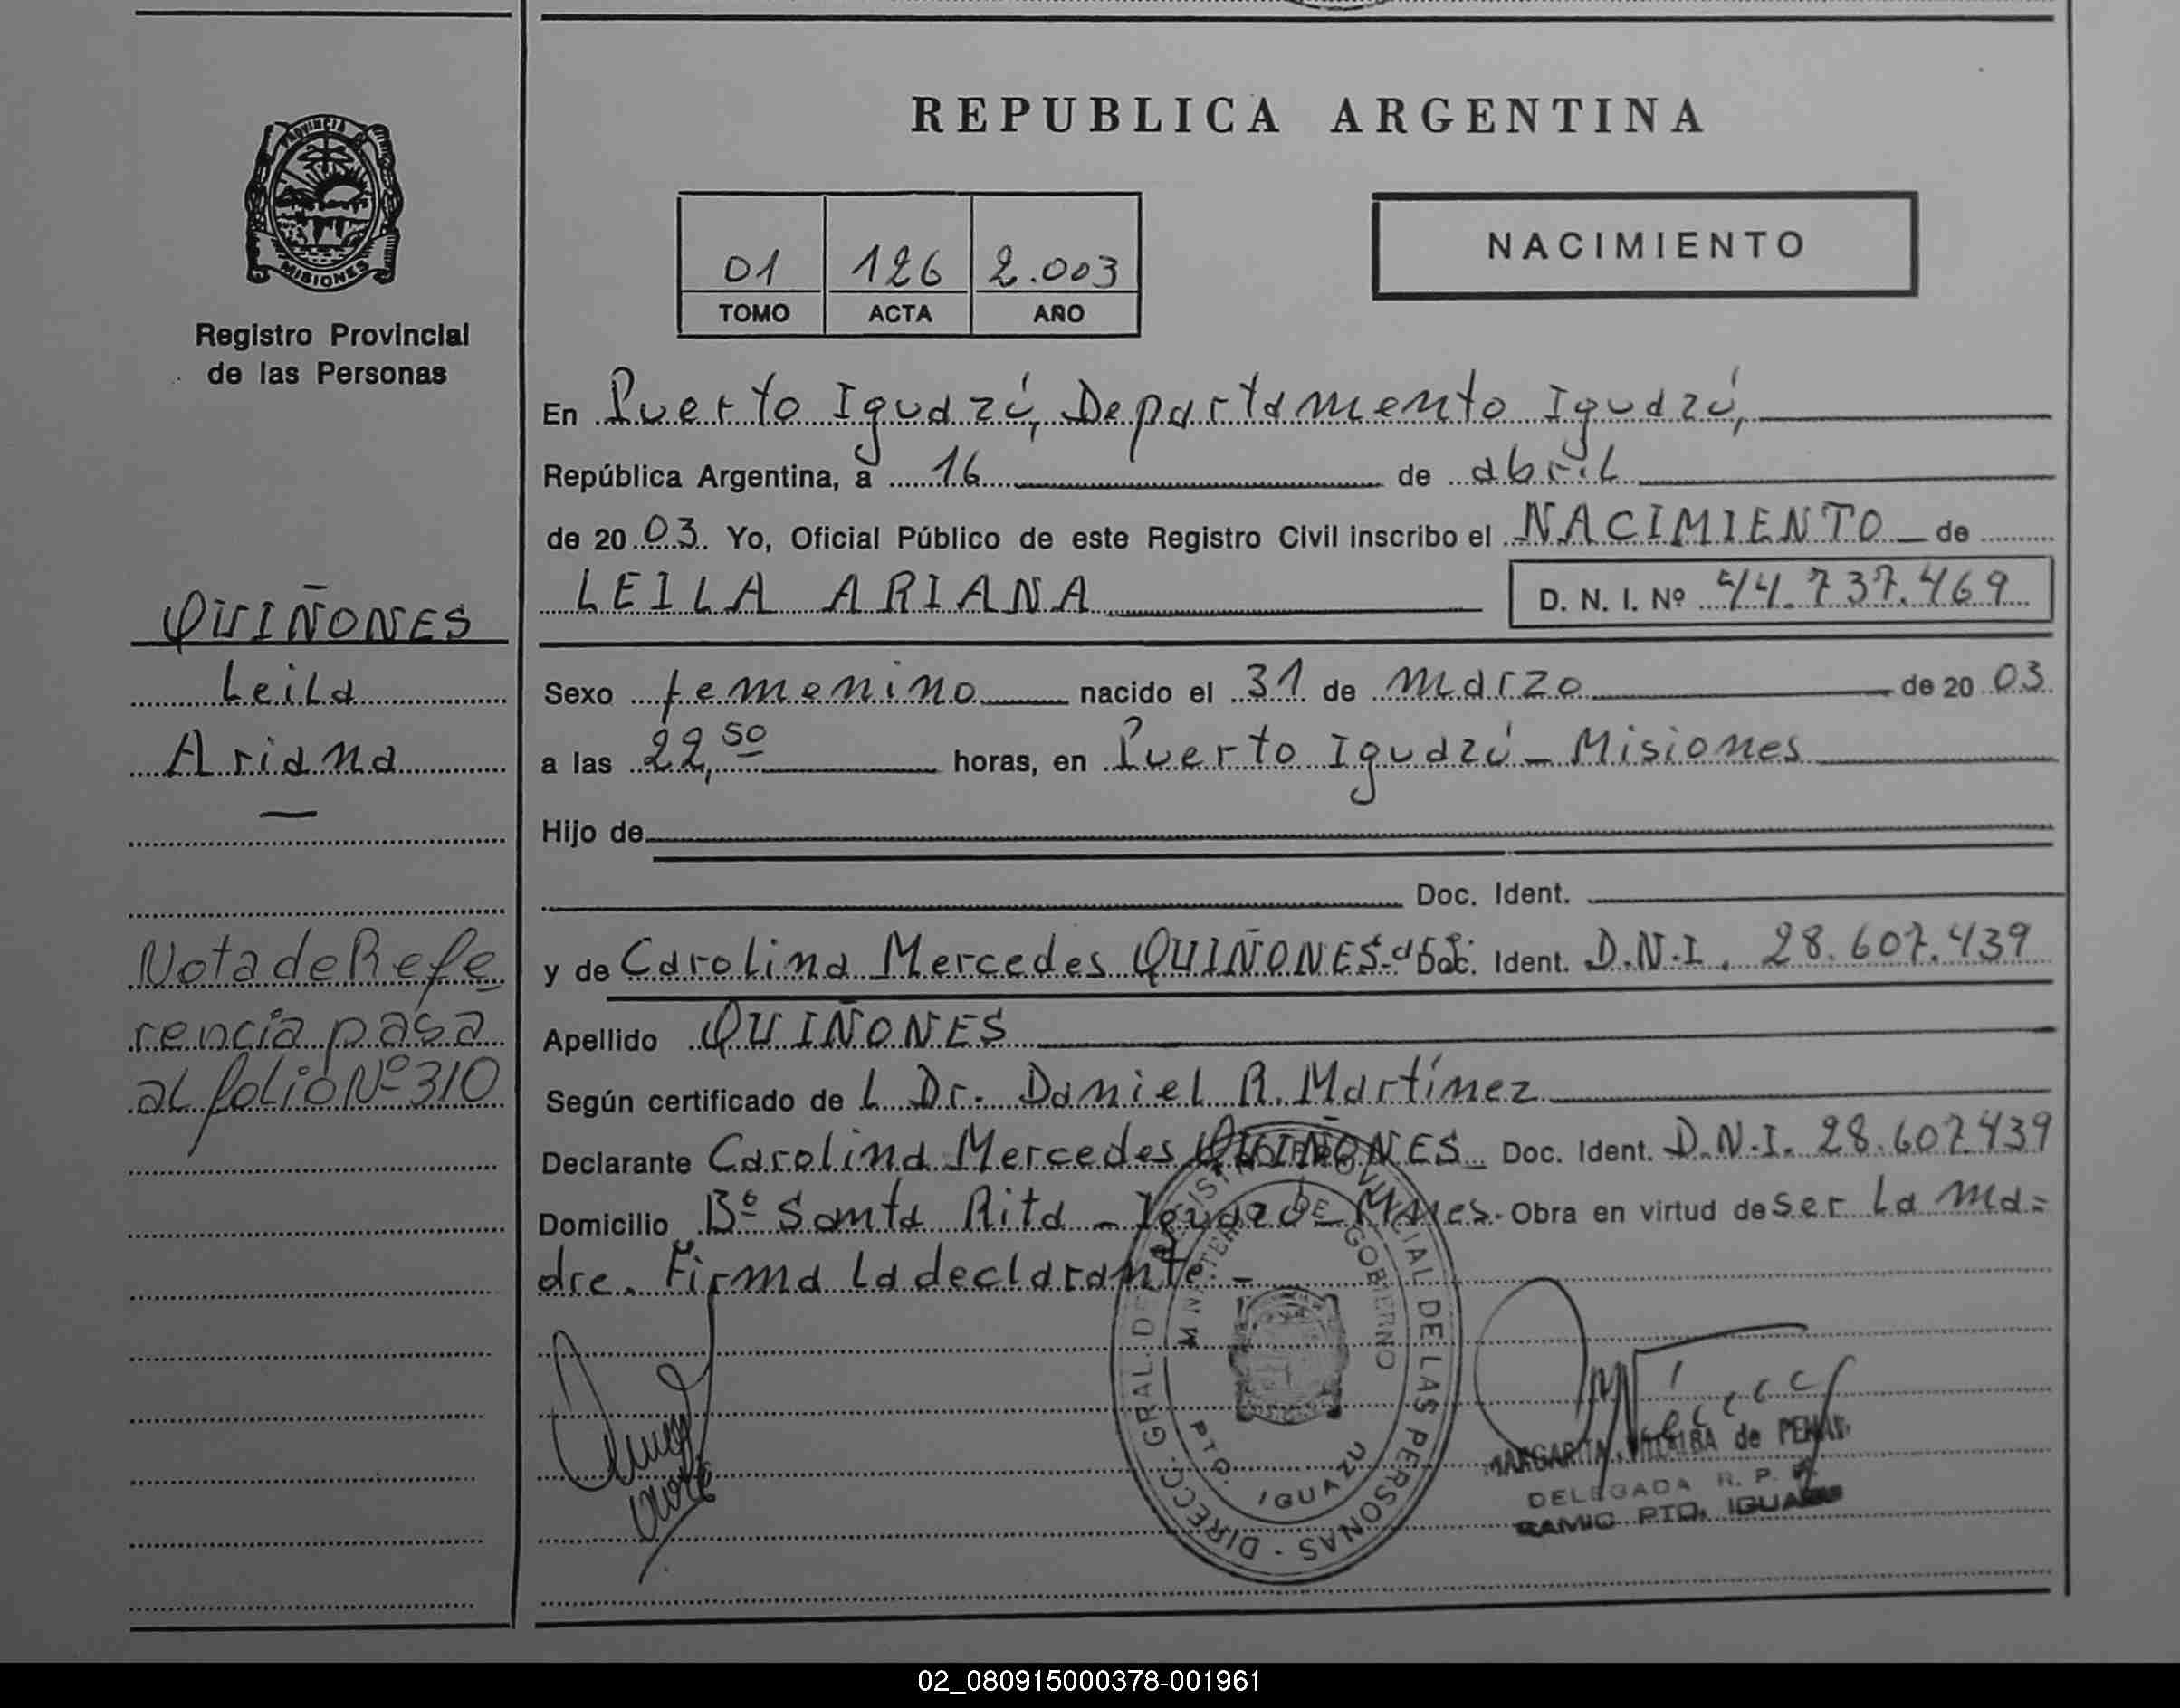 PROVINCIA
MISIONES
Registro Provincial
de las Personas
QUIÑONES
Leila
Ariana
Nota de Refe
rencia pasa
al folio Nº 310
REPUBLICA ARGENTINA
01 126 2.003
TOMO ACTA AÑO
NACIMIENTO
En Puerto Iguazú, Departamento Iguazú,
República Argentina, a 16 de abril
de 20 03. Yo, Oficial Público de este Registro Civil inscribo el NACIMIENTO de
LEILA ARIANA D. N. I. Nº 44.737.469
Sexo femenino nacido el 31 de marzo de 20 03
a las 22,50 horas, en Puerto Iguazú - Misiones
Hijo de
Doc. Ident.
y de Carolina Mercedes QUIÑONES Doc. Ident. D.N.I. 28.607.439
Apellido QUIÑONES
Según certificado de L Dr. Daniel R. Martínez
Declarante Carolina Mercedes QUIÑONES Doc. Ident. D.N.I. 28.607.439
Domicilio Bº Santa Rita - Iguazú - Mnes. Obra en virtud de ser la ma=
dre. Firma la declarante. -
DIRECC. GRAL. DE REGISTRO PROVINCIAL DE LAS PERSONAS
MINISTERIO DE GOBIERNO
PTO. IGUAZU
MARGARITA VILLALBA de
DELEGADA R. P. P.
RAMIC PTO. IGUAZU
02_080915000378-001961